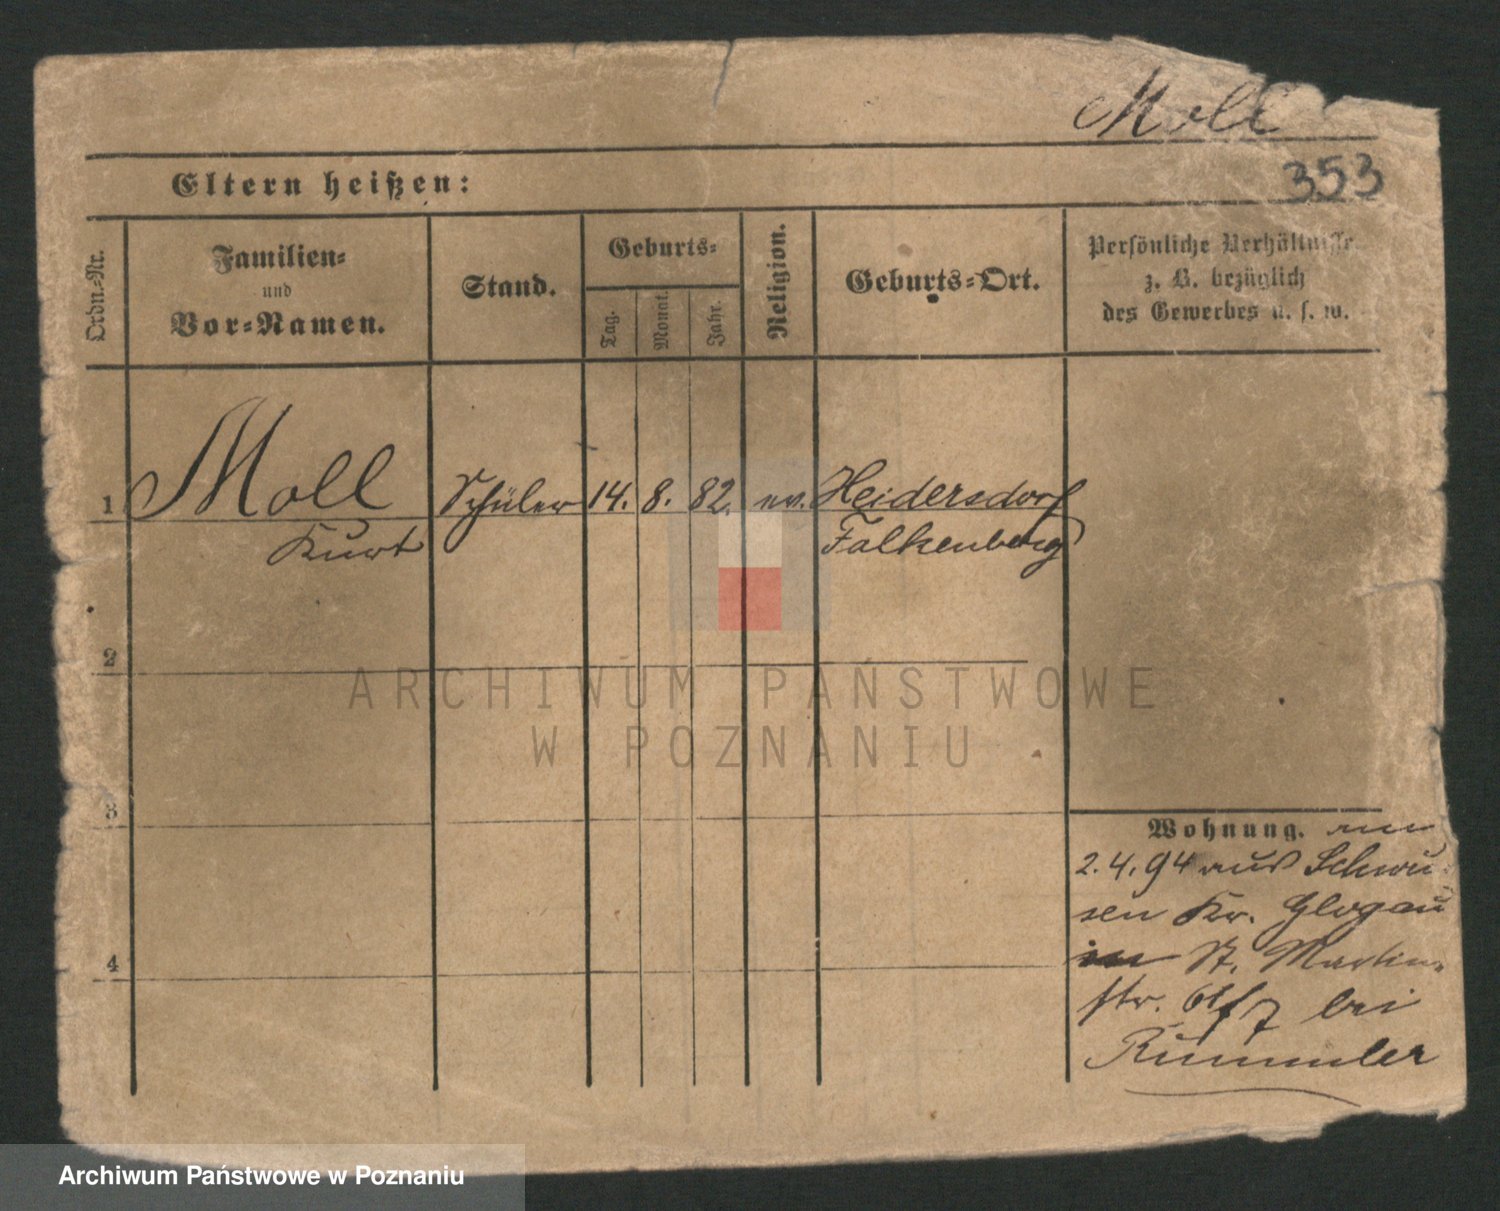 Moll
353
Eltern heißen:
Ordn.-Nr.
Familien-
und
Vor-Namen.
Stand.
Geburts-
Tag.
Monat.
Jahr.
Religion.
Geburts-Ort.
Persönliche Verhältnisse
z. B. bezüglich
des Gewerbes u. s. w.
1 Moll Schüler 14. 8. 82. ev. Heidersdorf
Kurt Falkenberg
2
3
4
Wohnung. am
2.4.94 aus Schwu-
sen Kr. Glogau
in St. Martin-
str. bei
Rummler
ARCHIWUM PAŃSTWOWE
W POZNANIU
Archiwum Państwowe w Poznaniu